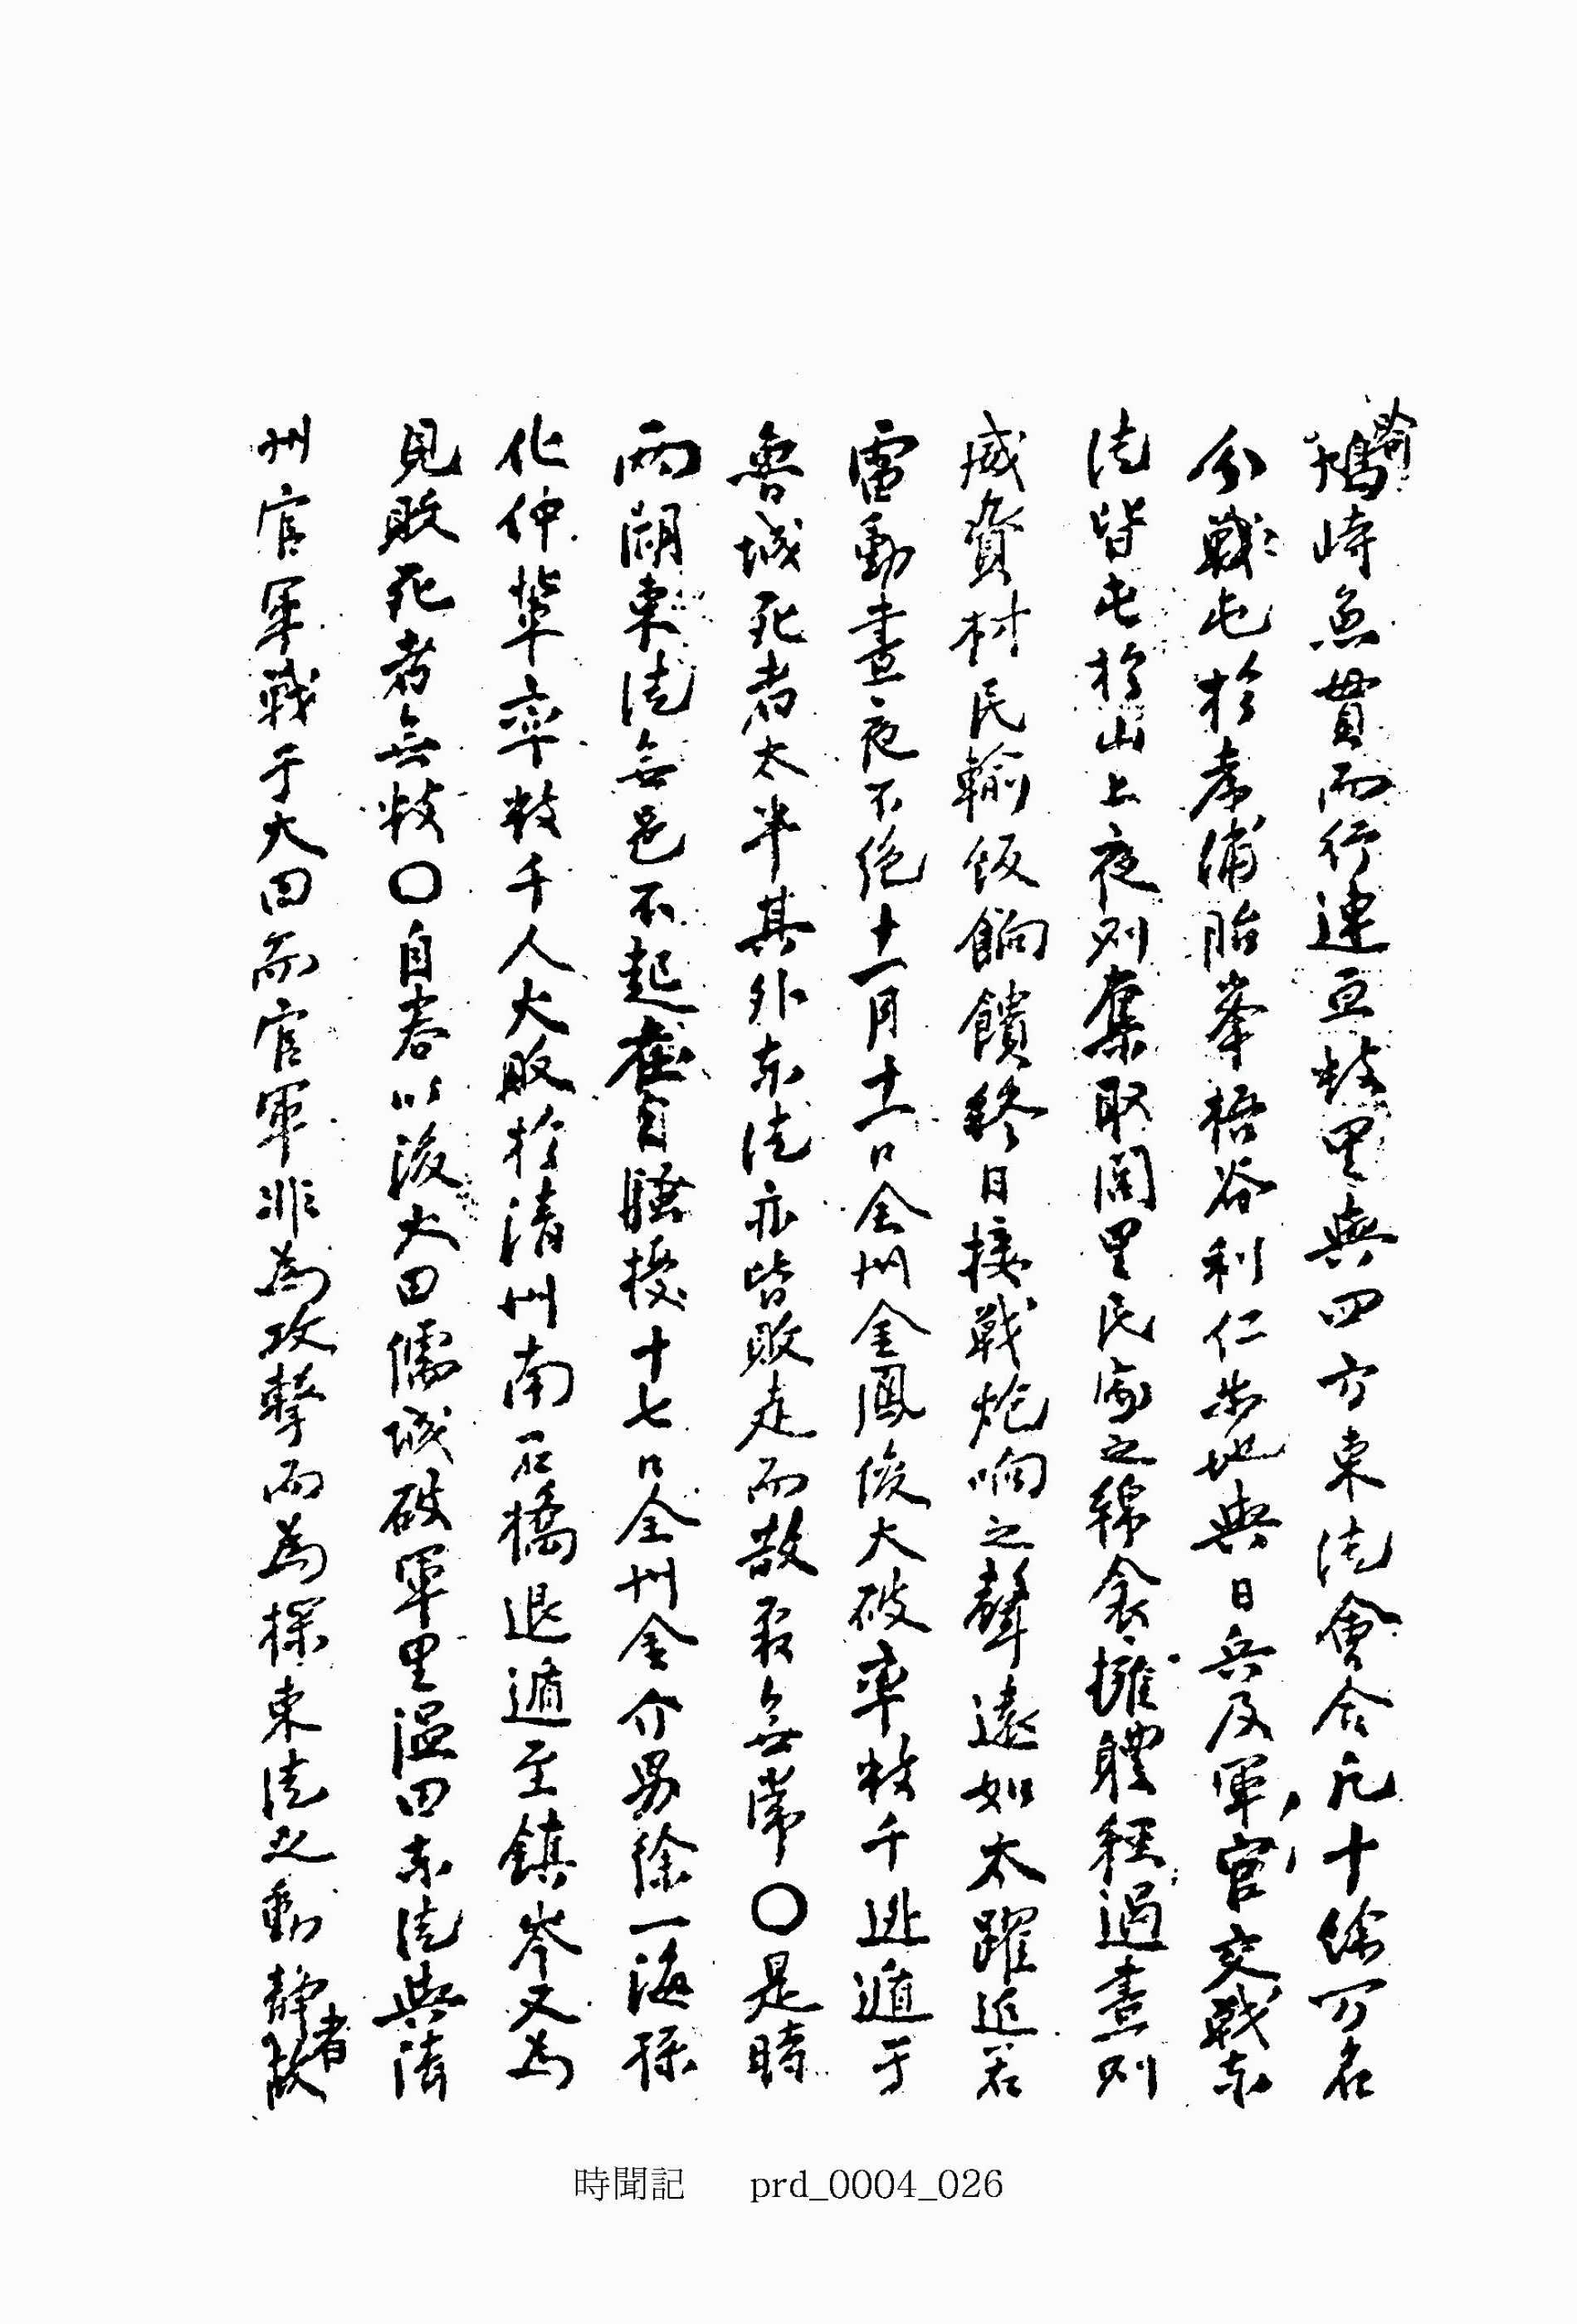 鴻峙魚貫而行連亘數里與四方東徒會合凡十余万名
分戰屯於孝浦胎峯梧谷利仁等地與日兵及軍官交戰東
徒皆屯於山上夜則奪取閭里民家之綿衾擁體經過晝則
威資村民輸飯餉饋終日接戰炮响之聲遠如太躍近若
雷動晝夜不絶十一月十一日全州金鳳俊大破率數千逃遁于
魯城死者太半其外東徒亦皆敗走而散聚無常〇是時
兩湖東徒無邑不起在自騷擾十七日全州金介男徐一海孫
化仲輩率數千人大敗於清州南石橋退遁至鎮岑又爲
見敗死者無數〇自春以後大田儒城破軍里溫田東徒與淸
州官軍戰于大田而官軍非爲攻擊而爲探東徒之動靜者故
時聞記 prd_0004_026